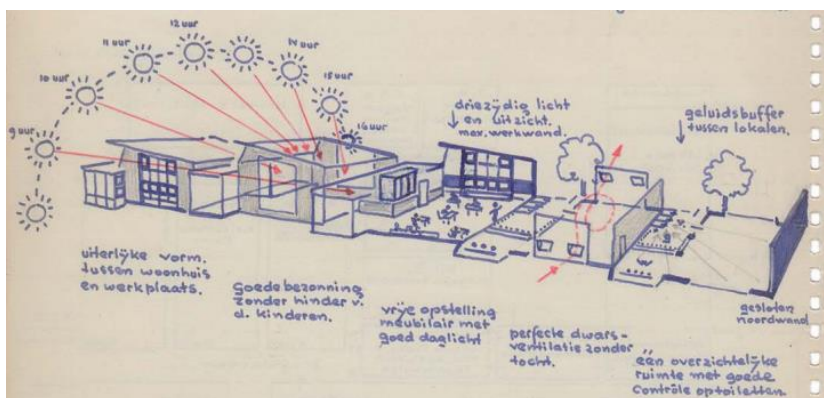 9 uur
10 uur
11 uur
12 uur
14 uur
15 uur
16 uur
driezijdig licht
en uitzicht.
max. werkwand.
geluidsbuffer
tussen lokalen.
uiterlijke vorm.
tussen woonhuis
en werkplaats.
goede bezonning
zonder hinder v.
d. kinderen.
vrije opstelling
meubilair met
goed daglicht
perfecte dwars-
ventilatie zonder
tocht.
één overzichtelijke
ruimte met goede
controle op toiletten.
gesloten
noordwand